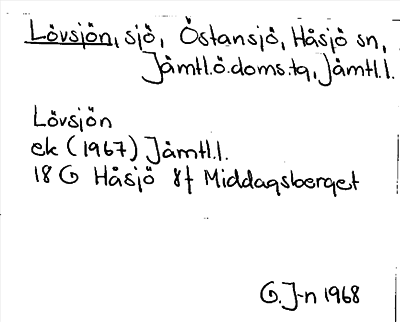 Lövsjön, sjö, Östansjö, Håsjö sn,
Jämtl.ö.doms.tg, Jämtl.l.
Lövsjön
ek (1967) Jämtl.l.
18 G Håsjö 8f Middagsberget
G. J-n 1968